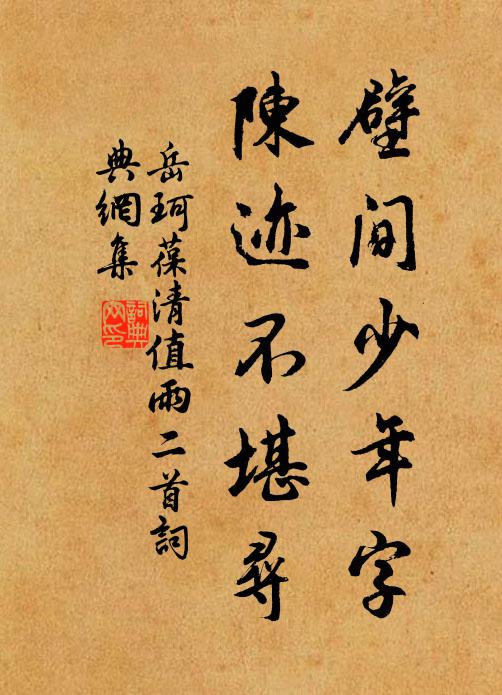 壁間少年字
陳迹不堪尋
岳珂葆清值雨二首詞
典網集
詞典
网印